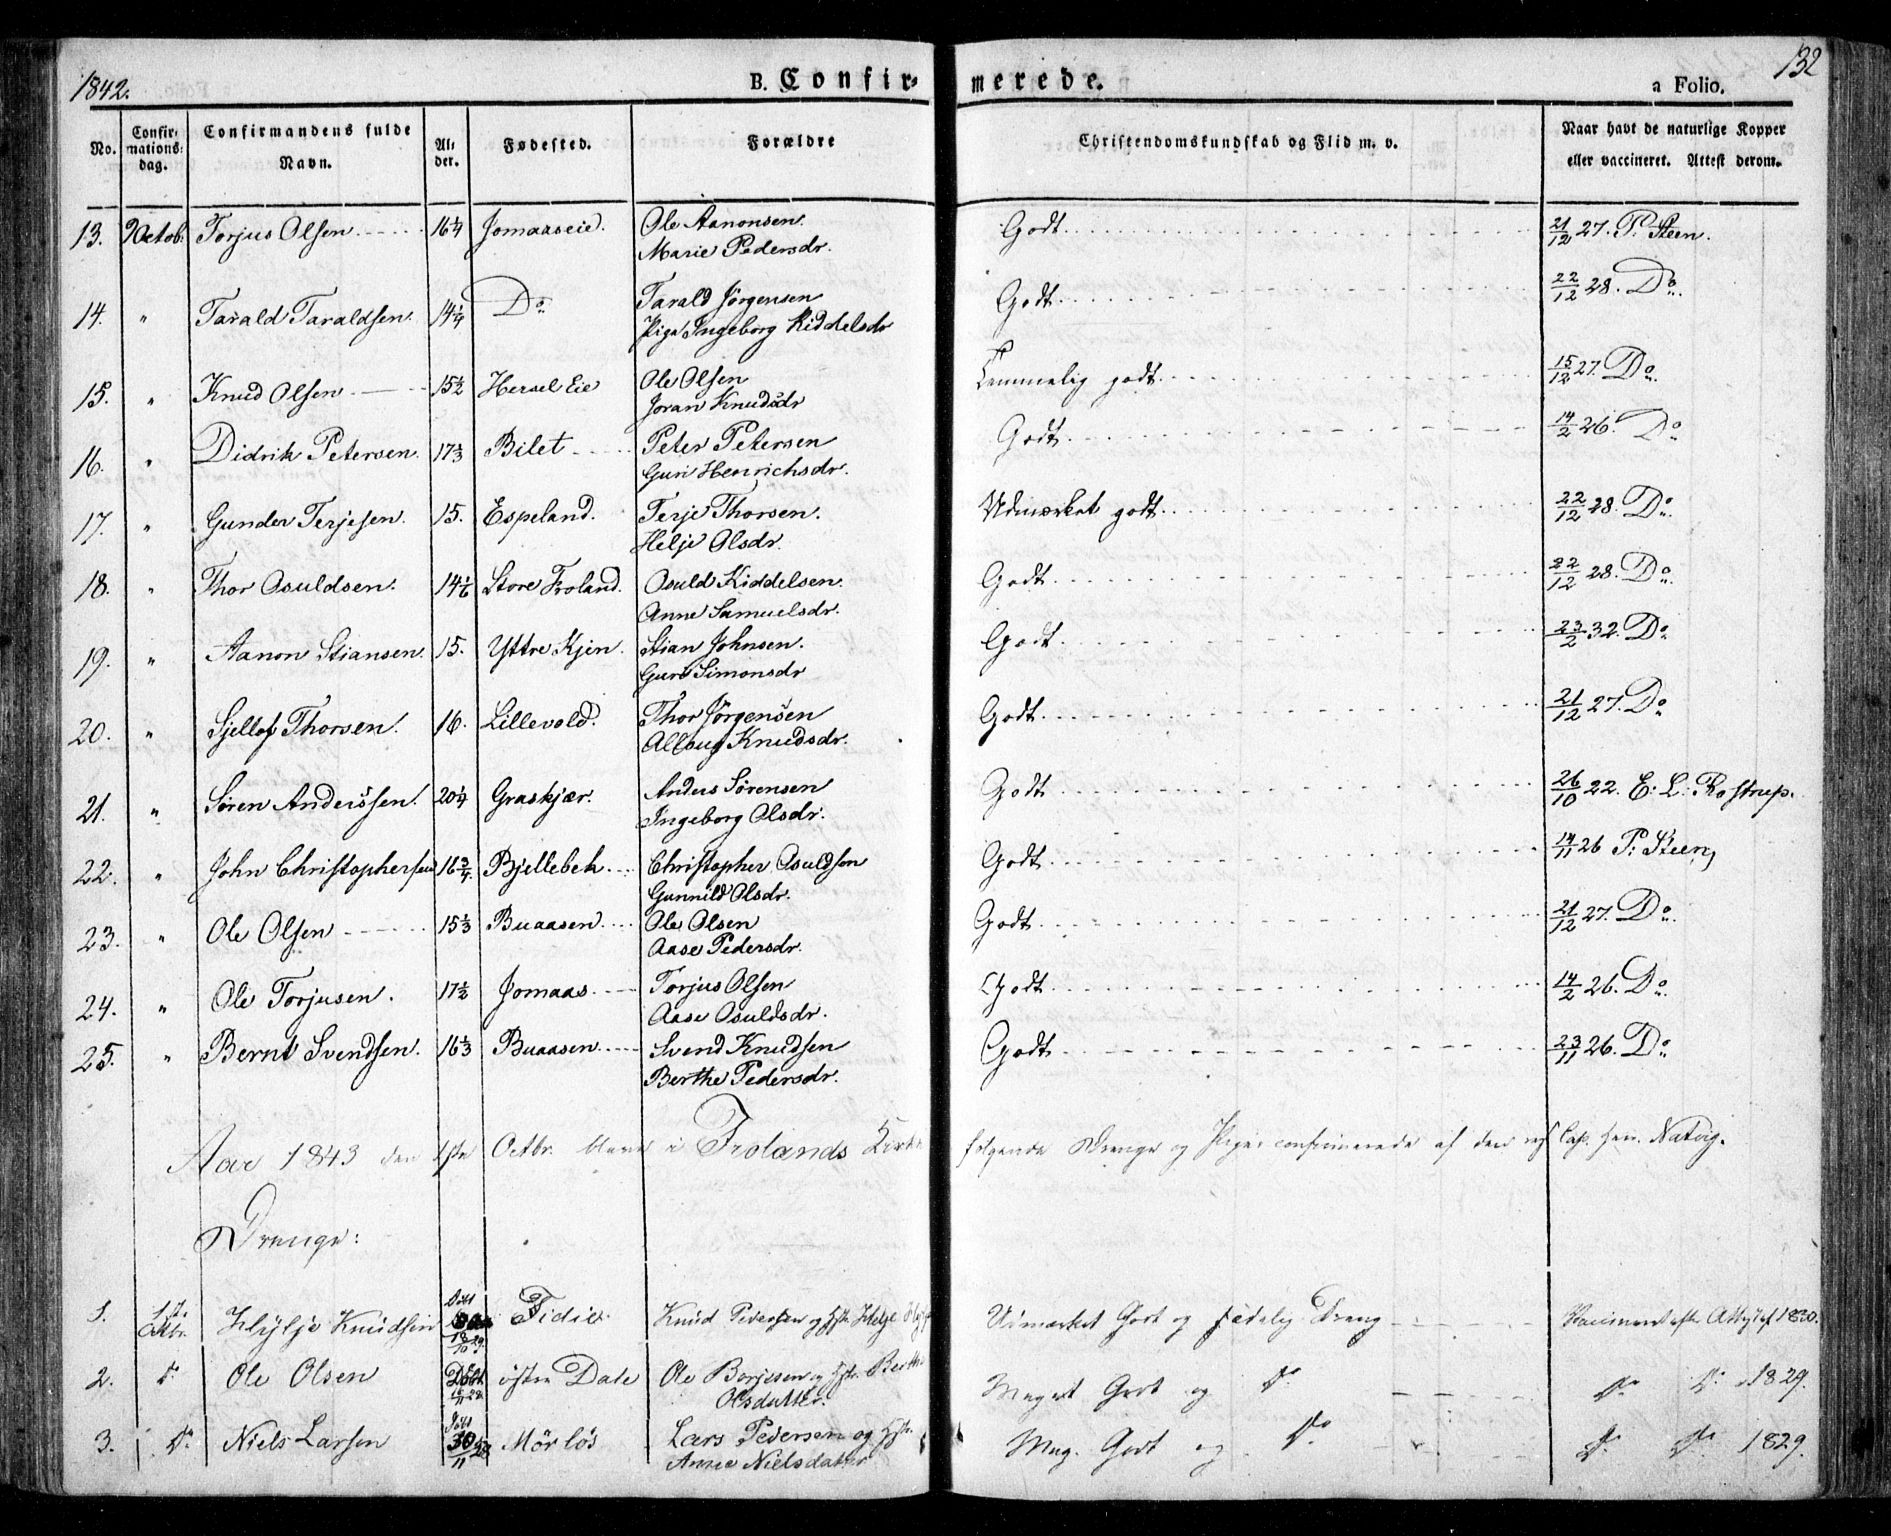 1842.
B. Confir-
merede.
132
a Folio.
No.
Confir-
mations-
dag.
Confirmandens fulde
Navn.
Al-
der.
Fødested.
Forældre
Christendomskundskab og Flid m. v.
Naar havt de naturlige Kopper
eller vaccineret. Attest derom.
13. 9 Octob. Torjus Olsen 16¼ Jomaaseie. Ole Aanonsen Godt 21/12 27. P. Steen.
Marie Pedersdr.
14. " Tarald Taraldsen. 14¼ Do Tarald Jörgensen Godt 22/12 28. Do
Pige Ingeborg Kiddelsdr
15. " Knud Olsen 15½ Hersel Eie Ole Olsen Temmelig godt. 15/12 27. Do
Joran Knudsdr
16. " Didrik Petersen. 17⅔ Bilet Peter Petersen Godt. 14/2 26. Do
Guri Henrichsdr.
17. " Gunder Terjesen. 15. Espeland. Terje Thorsen. Udmærket godt. 22/12 28. Do
Helje Olsdr.
18. " Thor Osuldsen. 14⅙ Store Froland. Osuld Kiddelsen. Godt 22/12 28. Do
Anne Samuelsdr.
19. " Aanon Stiansen. 15. Yttre Kjen. Stian Johnsen. Godt 23/2 32. Do
Guri Simonsdr
20. " Sjellof Thorsen. 16. Lillevold. Thor Jörgensen Godt 21/12 27. Do
Alloug Knudsdr.
21. " Sören Anderssen. 20¼ Graskjær. Anders Sörensen Godt 26/10 22. E. L. Rostrup.
Ingeborg Olsdr.
22. " John Christophersen 16¾ Bjellebek Christopher Osuldson Godt 14/11 26 P. Steen,
Gunnild Olsdr.
23. " Ole Olsen 15⅓ Buaasen Ole Olsen Godt 21/12 27. Do
Aase Pedersdr.
24. " Ole Torjusen. 17½ Jomaas Torjus Olsen Godt 14/2 26. Do
Aase Osuldsdr.
25. " Bernt Svendsen. 16⅓ Buaasen Svend Knudsen Godt 23/11 26. Do
Berthe Pedersdr.
Aar 1843 den 1ste Octbr. bleve i Frolands Kirke følgende Drenge og Piger confirmerede af den res. Cap. Hrr. Natvig.
Drenge:
1. 1ste Octbr. Knudsen 18/10 29. Tidie. Knud Pedersen og Hstr. Helje Udmærket Godt og sædelig Dreng 1830.
2. Do Ole Olsen Döbt östre Dale Ole Borjesen og Hstr. Berthe Meget Godt og Do Do Do 1829.
Olsdatter.
3. Do Niels Larsen Döbt 30/11 28 Mörlös Lars Pedersen og Hstr. Meg. Godt og Do Do Do 1829.
Anne Nielsdatter